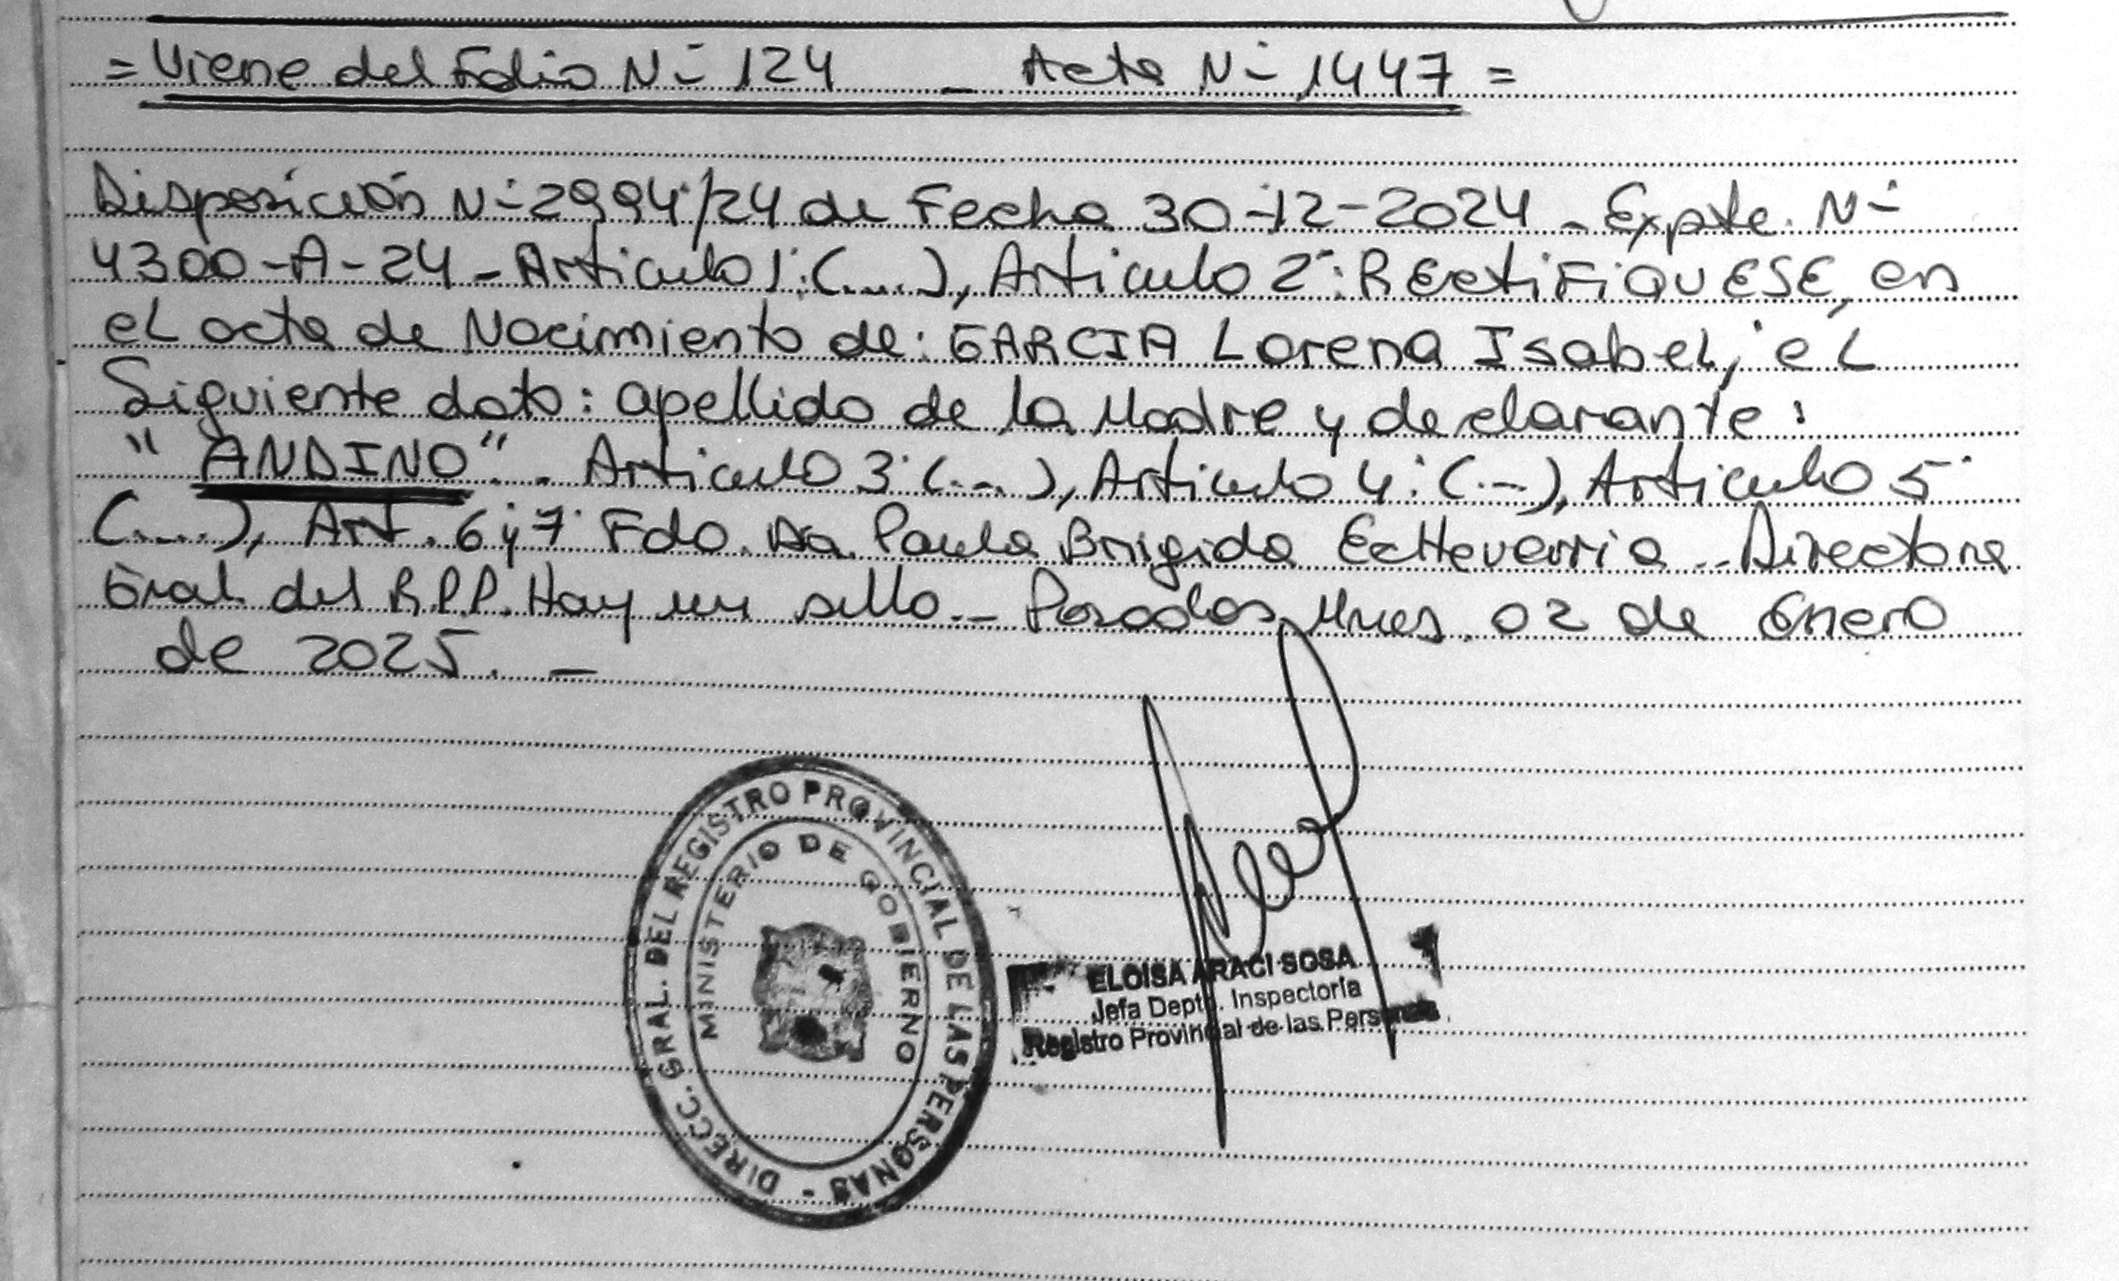 = Viene del Folio N- 124 - Acta N- 1447 =
Disposición N- 2994/24 de Fecha 30-12-2024 - Expte. N-
4300-A-24 - Articulo 1: (....), Articulo 2°: REctiFiQUESE, en
el acta de Nacimiento de: GARCIA Lorena Isabel, el
Siguiente dato: apellido de la Madre y declarante:
"ANDINO". Articulo 3° (...), Articulo 4: (...), Articulo 5°
(....), Art. 6 y 7° Fdo. Dra. Paula Brigida Echeverria - Directora
Gral del R.P.P. Hay un sello. - Posadas, Mnes. 02 de Enero
de 2025. -
DIRECC. GRAL. DEL REGISTRO PROVINCIAL DE LAS PERSONAS -
MINISTERIO DE GOBIERNO
ELOISA ARACI SOSA
Jefa Depto. Inspectoría
Registro Provincial de las Personas